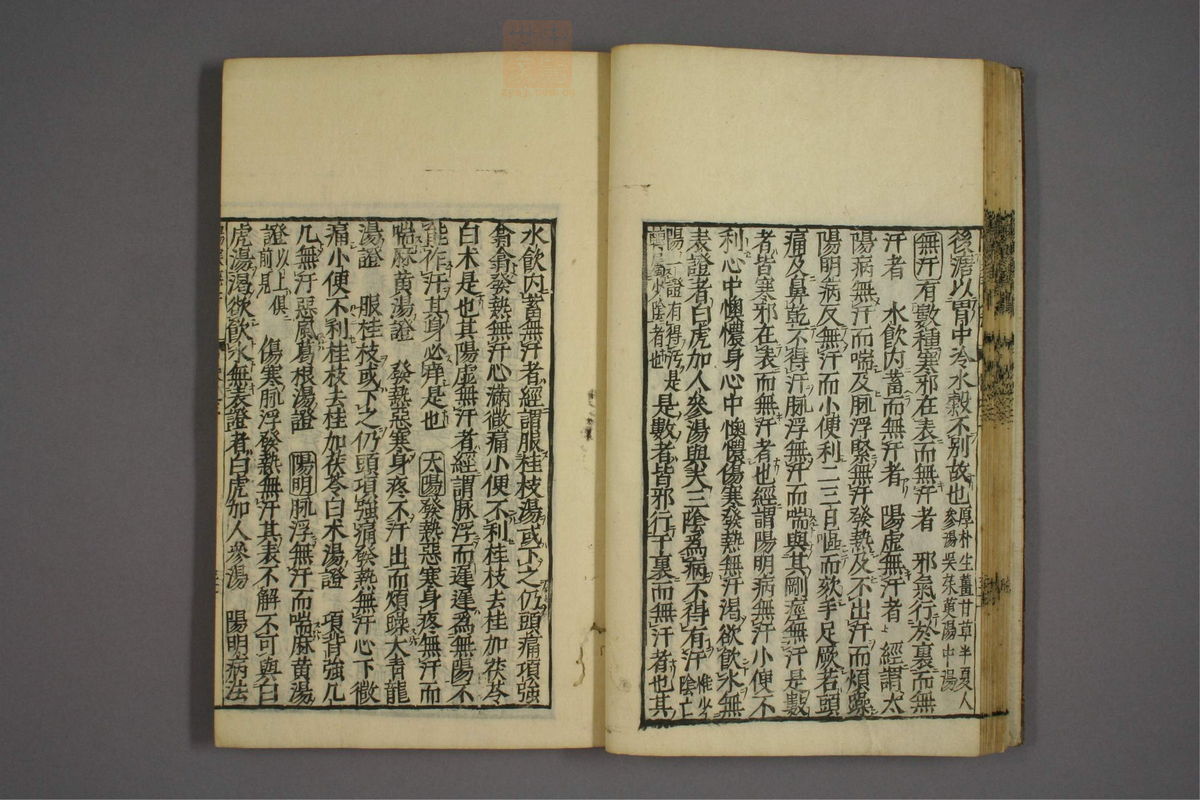 後溏以胃中冷水穀不別故也厚朴生薑甘草半夏人
參湯吳茱萸湯中湯
無汗有數種寒邪在表而無汗者 邪氣行於裏而無
汗者 水飲内蓄而無汗者 陽虛無汗者 經謂太
陽病無汗而喘及脉浮緊無汗發熱及不出汗而煩躁
陽明病反無汗而小便利二三日嘔而欬手足厥若頭
痛及鼻乾不得汗脉浮無汗而喘與其剛痙無汗是數
者皆寒邪在表而無汗者也經謂陽明病無汗小便不
利心中懊憹身心中懊憹傷寒發熱無汗渴欲飲水無
表證者白虎加人參湯與夫三陰為病不得有汗惟少
陰亡
陽一證有得汗是
屬少陰者也 是數者皆邪行于裏而無汗者也其
水飲内蓄無汗者經謂服桂枝湯或下之仍頭痛項強
翕翕發熱無汗心滿微痛小便不利桂枝去桂加茯苓
白术是也其陽虛無汗者經謂脉浮而遲遲為無陽不
能作汗其身必痒是也 太陽發熱惡寒身疼無汗而
喘麻黄湯證 發熱惡寒身疼不汗出而煩躁大青龍
湯證 服桂枝或下之仍頭項強痛發熱無汗心下微
痛小便不利桂枝去桂加茯苓白术湯證 項背強几
几無汗惡風葛根湯證 陽明脉浮無汗而喘麻黄湯
證以上俱
前見 傷寒脉浮發熱無汗其表不解不可與白
虎湯渴欲飲水無表證者白虎加人參湯 陽明病法